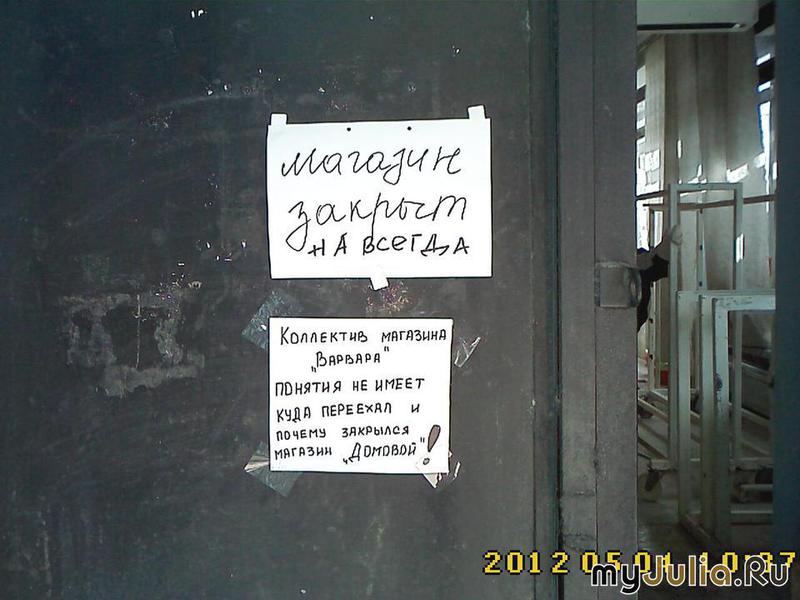 магазин
закрыт
НА ВСЕГДА
КОЛЛЕКТИВ МАГАЗИНА
„ВАРВАРА"
ПОНЯТИЯ НЕ ИМЕЕТ
КУДА ПЕРЕЕХАЛ И
ПОЧЕМУ ЗАКРЫЛСЯ
МАГАЗИН „ДОМОВОЙ"!
2012 05 04 10:37
myJulia.Ru